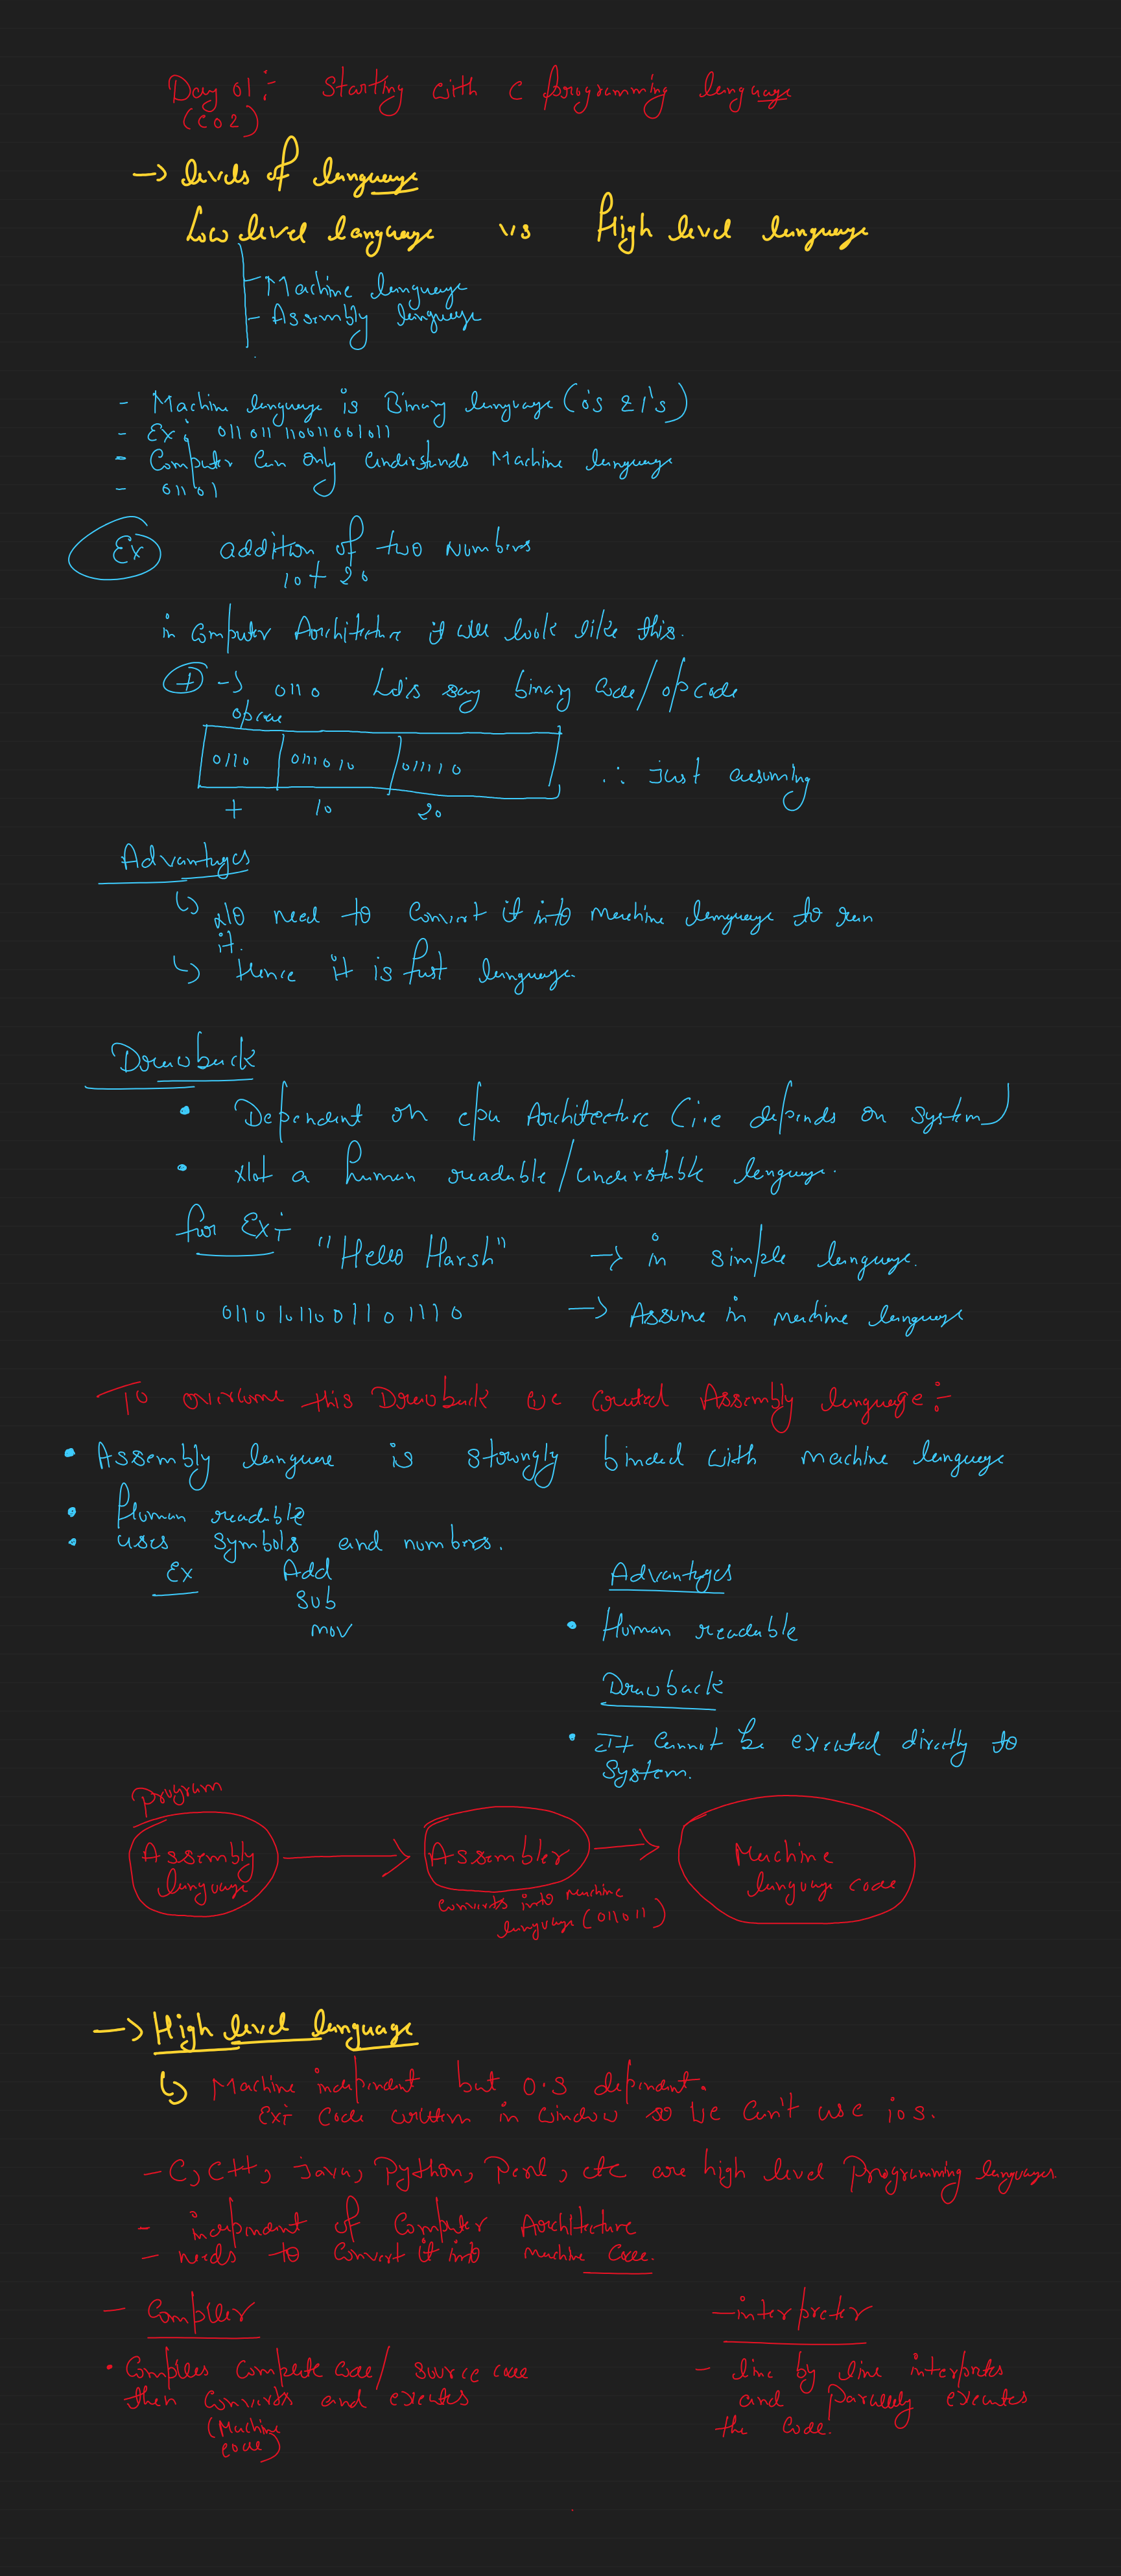 Day 01:- Starting with C programming language
(C02)
→ levels of language
Low level language vs High level language
- Machine language
- Assembly language
- Machine language is Binary language (0's & 1's)
- Ex: 011 011 110011001011
- Computer Can only understands Machine language
- 01101
Ex addition of two numbers
10 + 20
in Computer Architecture it will look like this.
+ → 0110 Let's say binary code/opcode
opcode
0110 0111010 011110
+ 10 20
∴ just assuming
Advantages
↳ No need to Convert it into machine language to run
it.
↳ Hence it is fast language.
Drawback
• Dependent on cpu Architecture (i.e depends on system)
• Not a human readable/understable language.
for Ex:-
"Hello Harsh" → in simple language.
0110 10110 011 0 1110 → Assume in machine language
To overcome this Drawback we created Assembly language:-
• Assembly languare is strongly binded with machine language
• Human readable
• uses symbols and numbers.
Ex Add
Sub
mov
Advantages
• Human readable
Drawback
• It Cannot be executed directly to
System.
Program
Assembly
language
→ Assembler →
converts into machine
language (011011)
Machine
language code
→ High level language
↳ Machine independent but O.S dependent.
Ex:- Code written in window so we Can't use ios.
- C, C++, java, Python, Perl, etc are high level Programming languages.
- independent of Computer Architecture
- needs to Convert it into machine Code.
- Compiler
• Compiles Complete Code/ source code
then Converts and executes
(Machine
code)
- interpreter
- line by line interprets
and Parallely executes
the Code.